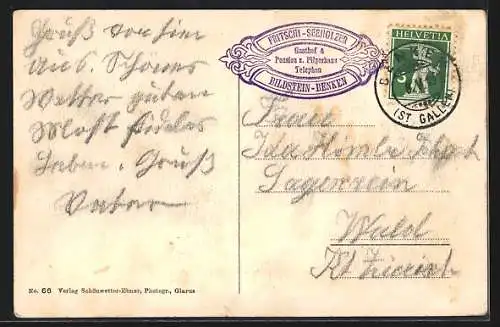 Gruß von hier
aus. Schönes
Wetter guten
Most fideles
Leben. Gruß
Vater
FRITSCHI-SEEHOLZER
Gasthof &
Pension z. Pilgerhaus
Telephon
BILDSTEIN-BENKEN
HELVETIA
5
(ST GALLEN)
Frau
Ida
Lagerrein
Wald
Kt Zürich
No. 66 Verlag Schönwetter-Elmer, Photogr., Glarus